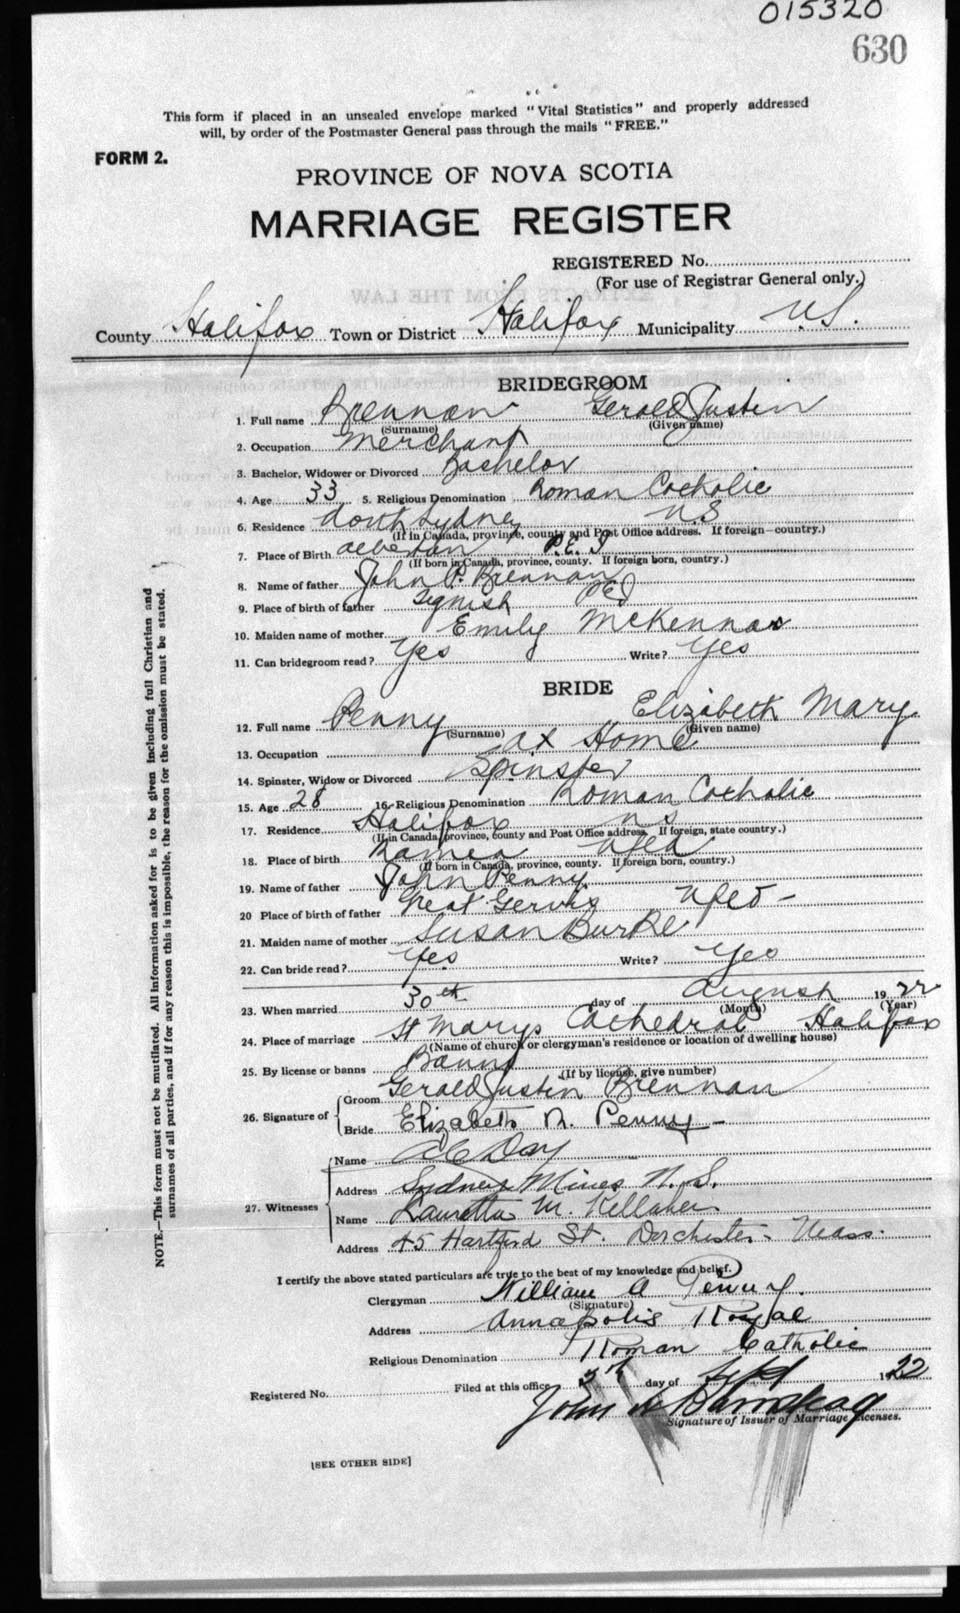 015320
630
This form if placed in an unsealed envelope marked "Vital Statistics" and properly addressed
will, by order of the Postmaster General pass through the mails "FREE."
FORM 2.
PROVINCE OF NOVA SCOTIA
MARRIAGE REGISTER
REGISTERED No.
(For use of Registrar General only.)
County Halifax Town or District Halifax Municipality N.S.
BRIDEGROOM
1. Full name Brennan Gerald Justin
(Surname) (Given name)
2. Occupation Merchant
3. Bachelor, Widower or Divorced Bachelor
4. Age 33 5. Religious Denomination Roman Catholic
6. Residence North Sydney N.S
(If in Canada, province, county and Post Office address. If foreign—country.)
7. Place of Birth Alberton P.E.I
(If born in Canada, province, county. If foreign born, country.)
8. Name of father John P. Brennan
9. Place of birth of father Tignish PEI
10. Maiden name of mother Emily McKenna
11. Can bridegroom read? Yes Write? Yes
BRIDE
12. Full name Penny Elizabeth Mary
(Surname) (Given name)
13. Occupation At Home
14. Spinster, Widow or Divorced Spinster
15. Age 28 16. Religious Denomination Roman Catholic
17. Residence Halifax NS
(If in Canada, province, county and Post Office address. If foreign, state country.)
18. Place of birth Ramea Nfld
(If born in Canada, province, county. If foreign born, country.)
19. Name of father John Penny
20 Place of birth of father Great Nfld -
21. Maiden name of mother Susan Burke
22. Can bride read? Yes Write? Yes
23. When married 30th day of August 1922
(Month) (Year)
24. Place of marriage St Marys Cathedral Halifax
(Name of church or clergyman's residence or location of dwelling house)
25. By license or banns Banns
(If by license, give number)
26. Signature of Groom Gerald Justin Brennan
Bride Elizabeth M. Penny
27. Witnesses Name Day
Address Sydney Mines N.S.
Name Lauretta M. Kellaher
Address 45 Hartford St. Dorchester. Mass.
I certify the above stated particulars are true to the best of my knowledge and belief.
Clergyman William A Penny.
(Signature)
Address Annapolis Royal
Religious Denomination Roman Catholic
Registered No. Filed at this office day of Sept 1922
John A
Signature of Issuer of Marriage Licenses.
[SEE OTHER SIDE]
NOTE.—This form must not be mutilated. All information asked for is to be given including full Christian and
surnames of all parties, and if for any reason this is impossible, the reason for the omission must be stated.